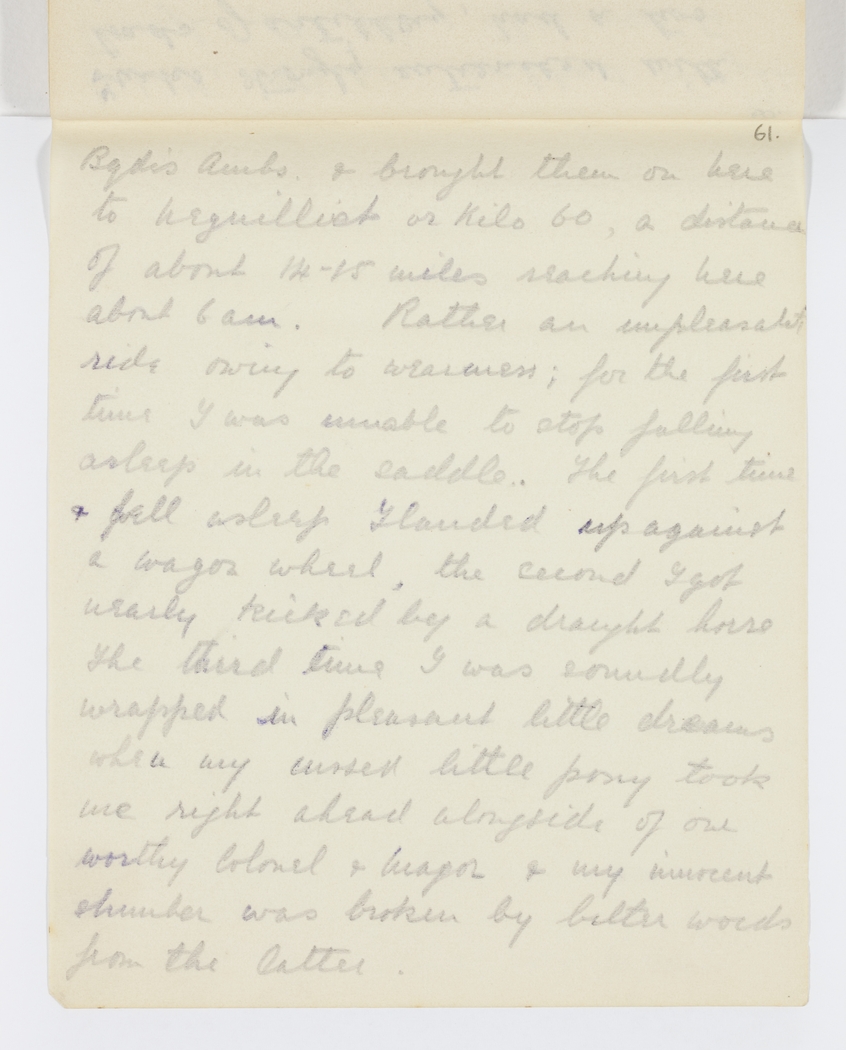 61.
Bgdis Ambs. & brought them on here
to Neguilliat or Kilo 60, a distance
of about 14-15 miles reaching here
about 6 am. Rather an unpleasant
ride owing to weariness; for the first
time I was unable to stop falling
asleep in the saddle. The first time
I fell asleep I landed up against
a wagon wheel, the second I got
nearly kicked by a draught horse
The third time I was soundly
wrapped in pleasant little dreams
when my cussed little pony took
me right ahead alongside of our
worthy Colonel & Major & my innocent
slumber was broken by bitter words
from the latter.